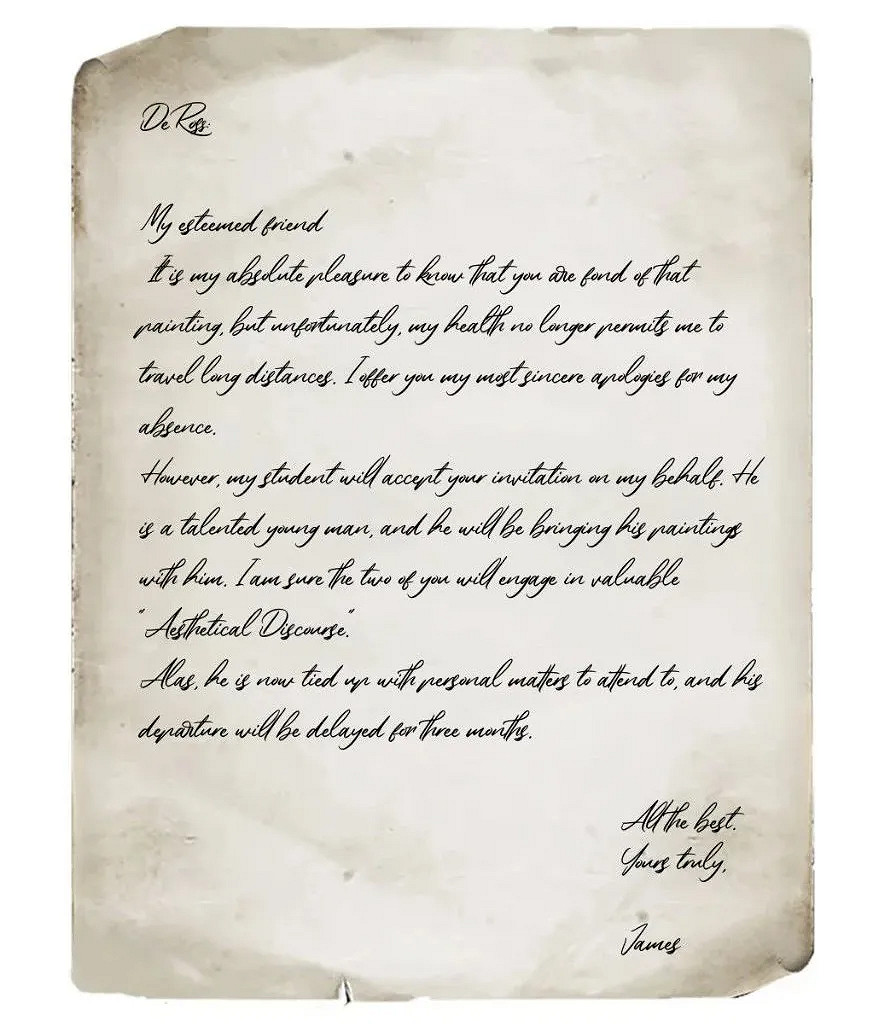 De Ross:
My esteemed friend
It is my absolute pleasure to know that you are fond of that
painting, but unfortunately, my health no longer permits me to
travel long distances. I offer you my most sincere apologies for my
absence.
However, my student will accept your invitation on my behalf. He
is a talented young man, and he will be bringing his paintings
with him. I am sure the two of you will engage in valuable
"Aesthetical Discourse".
Alas, he is now tied up with personal matters to attend to, and his
departure will be delayed for three months.
All the best.
Yours truly,
James